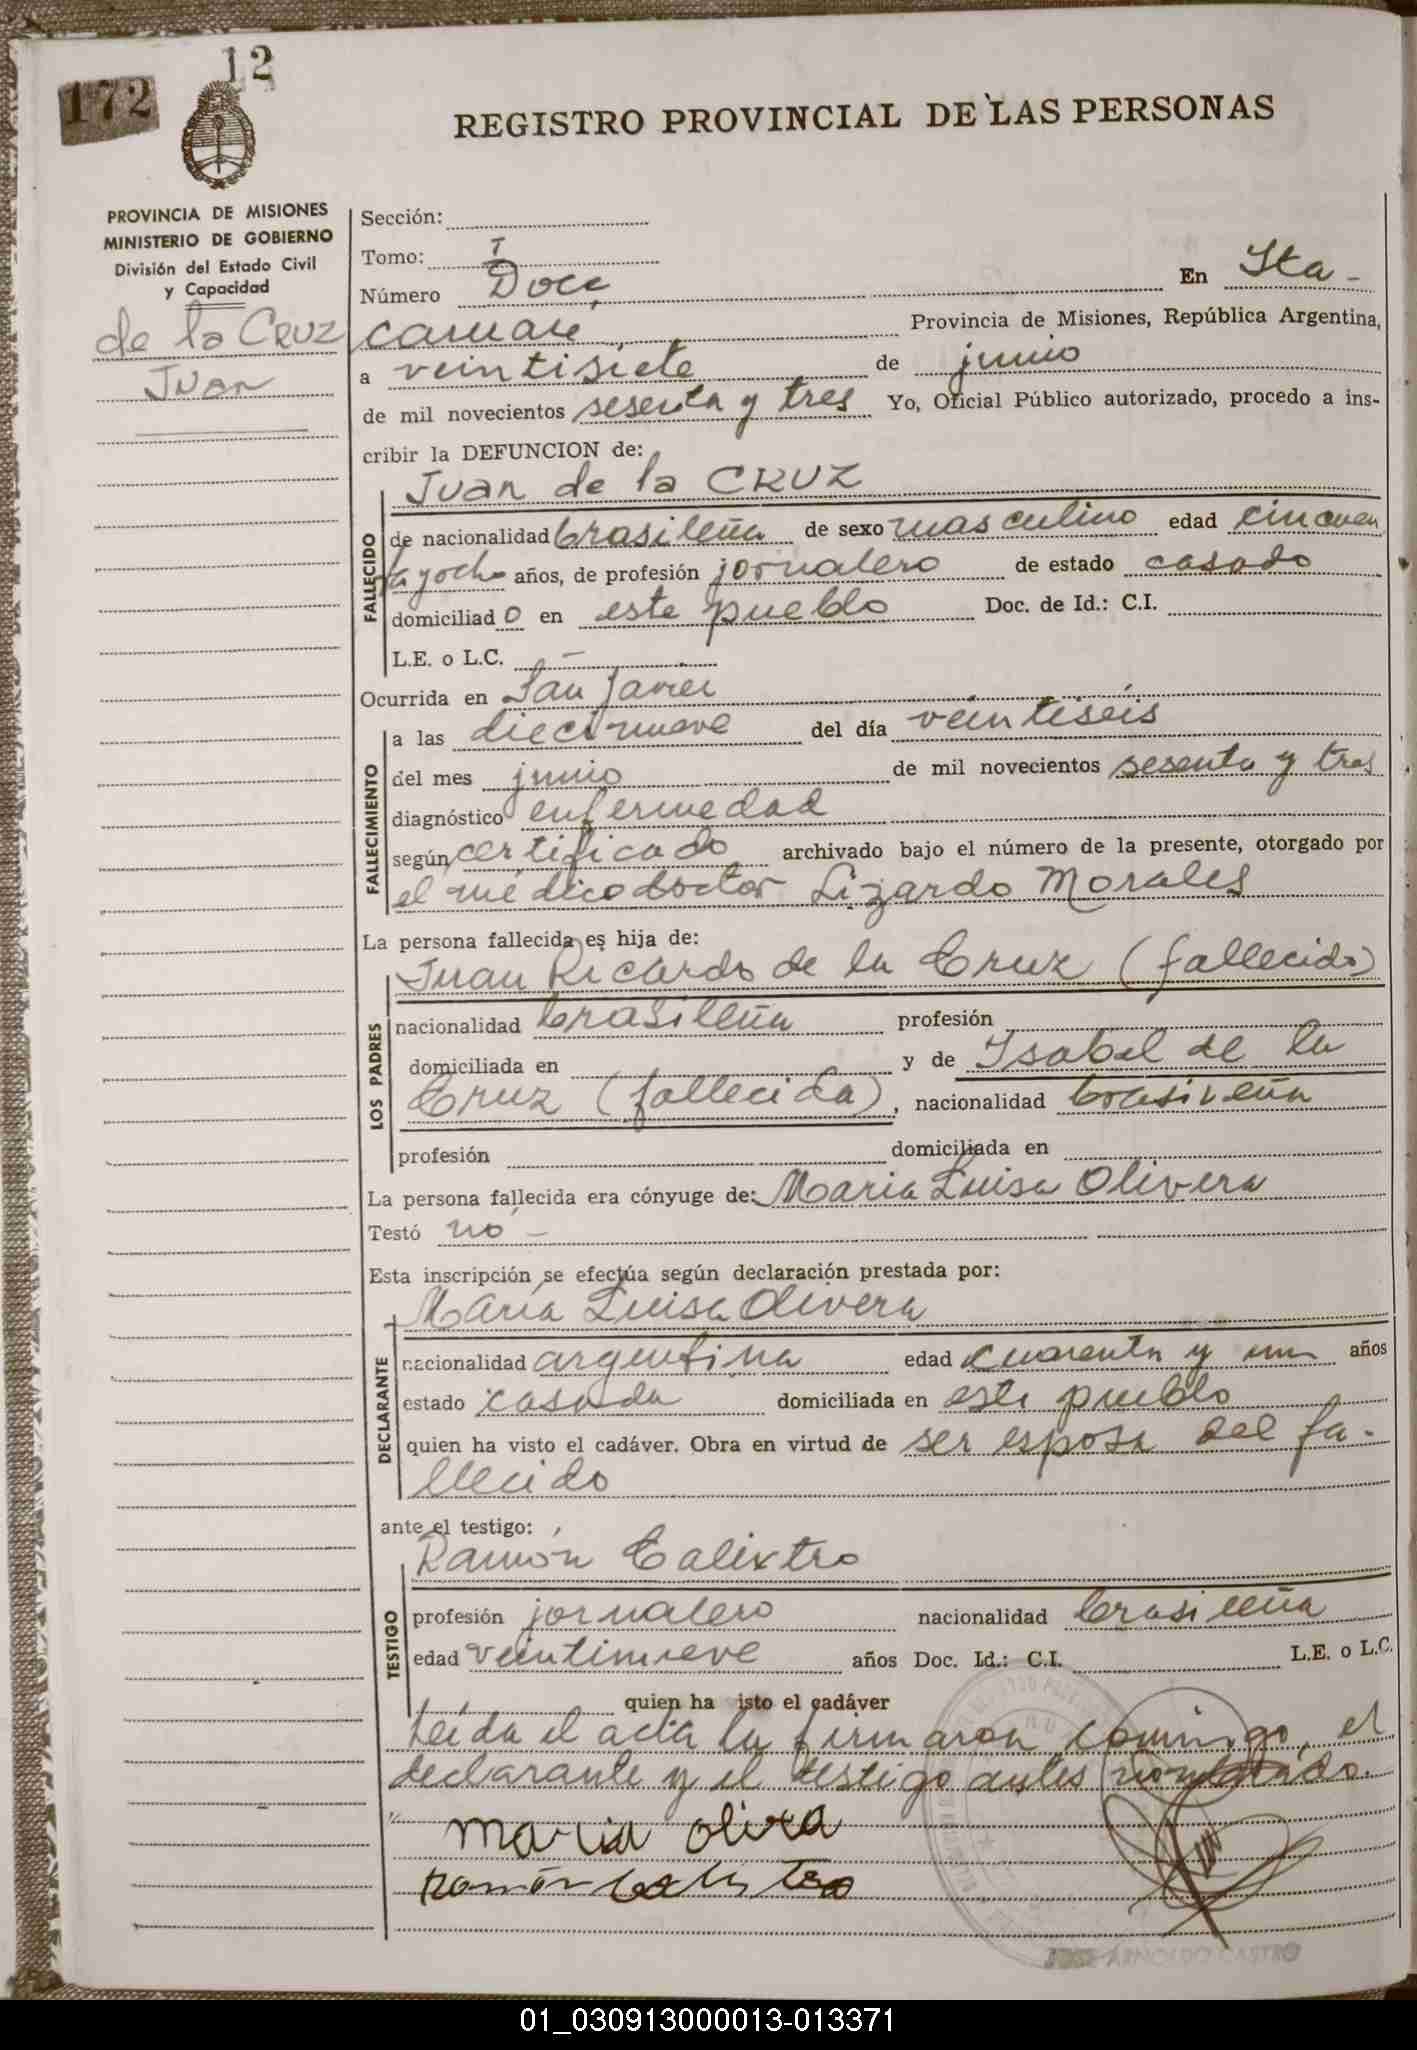 12
172
REGISTRO PROVINCIAL DE LAS PERSONAS
PROVINCIA DE MISIONES
MINISTERIO DE GOBIERNO
División del Estado Civil
y Capacidad
de la CRUZ
Juan
Sección:
Tomo: I
Número Doce En Ita-
caruaré Provincia de Misiones, República Argentina,
a veintisiete de junio
de mil novecientos sesenta y tres Yo, Oficial Público autorizado, procedo a ins-
cribir la DEFUNCION de:
Juan de la CRUZ
FALLECIDO
de nacionalidad brasileña de sexo masculino edad cincuen
ta y ocho años, de profesión jornalero de estado casado
domiciliado en este pueblo Doc. de Id.: C.I.
L.E. o L.C. —
Ocurrida en San Javier
FALLECIMIENTO
a las diecinueve del día veintiséis
del mes junio de mil novecientos sesenta y tres
diagnóstico enfermedad
según certificado archivado bajo el número de la presente, otorgado por
el médico doctor Lizardo Morales
La persona fallecida es hija de:
LOS PADRES
Juan Ricardo de la Cruz (fallecido)
nacionalidad brasileña profesión
domiciliada en y de Isabel de la
Cruz (fallecida), nacionalidad brasileña
profesión domiciliada en
La persona fallecida era cónyuge de: Maria Luisa Olivera
Testó no —
Esta inscripción se efectúa según declaración prestada por:
DECLARANTE
María Luisa Olivera
nacionalidad argentina edad cuarenta y un años
estado casada domiciliada en este pueblo
quien ha visto el cadáver. Obra en virtud de ser esposa del fa-
llecido
ante el testigo:
TESTIGO
Ramón Calixtro
profesión jornalero nacionalidad brasileña
edad veintinueve años Doc. Id.: C.I. L.E. o L.C.
quien ha isto el cadáver
Leída el acta la firmaron conmigo, el
declarante y el testigo antes nombrado.
maria olira
JOSE ARNOLDO CASTRO
01_030913000013-013371